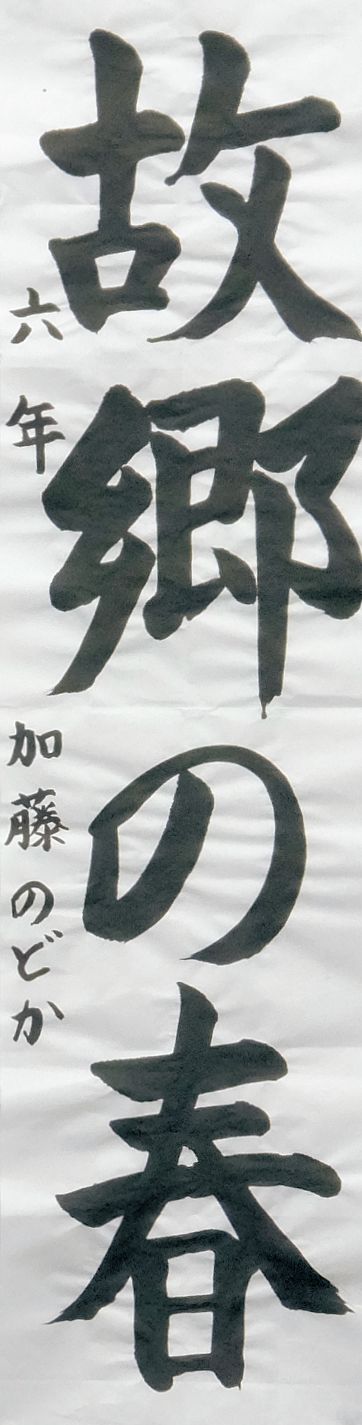 故郷の春
六年 加藤のどか